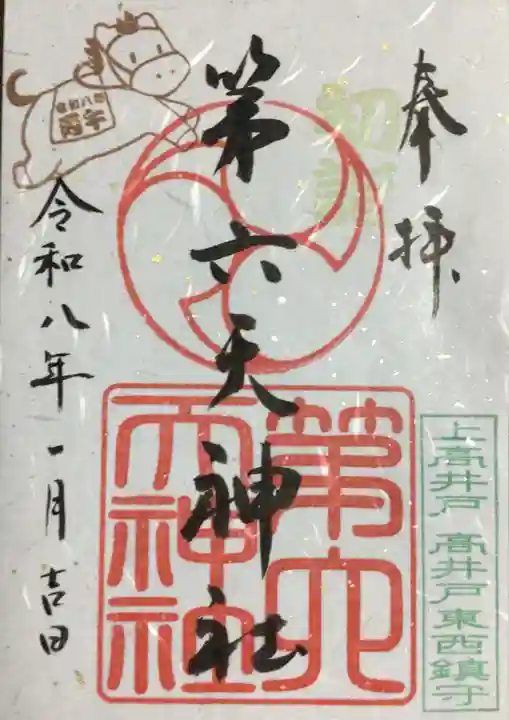 奉拝
初詣
第六天神社
第六
天神社
上高井戸 高井戸東西鎮守
令和八年
丙午
令和八年一月吉日